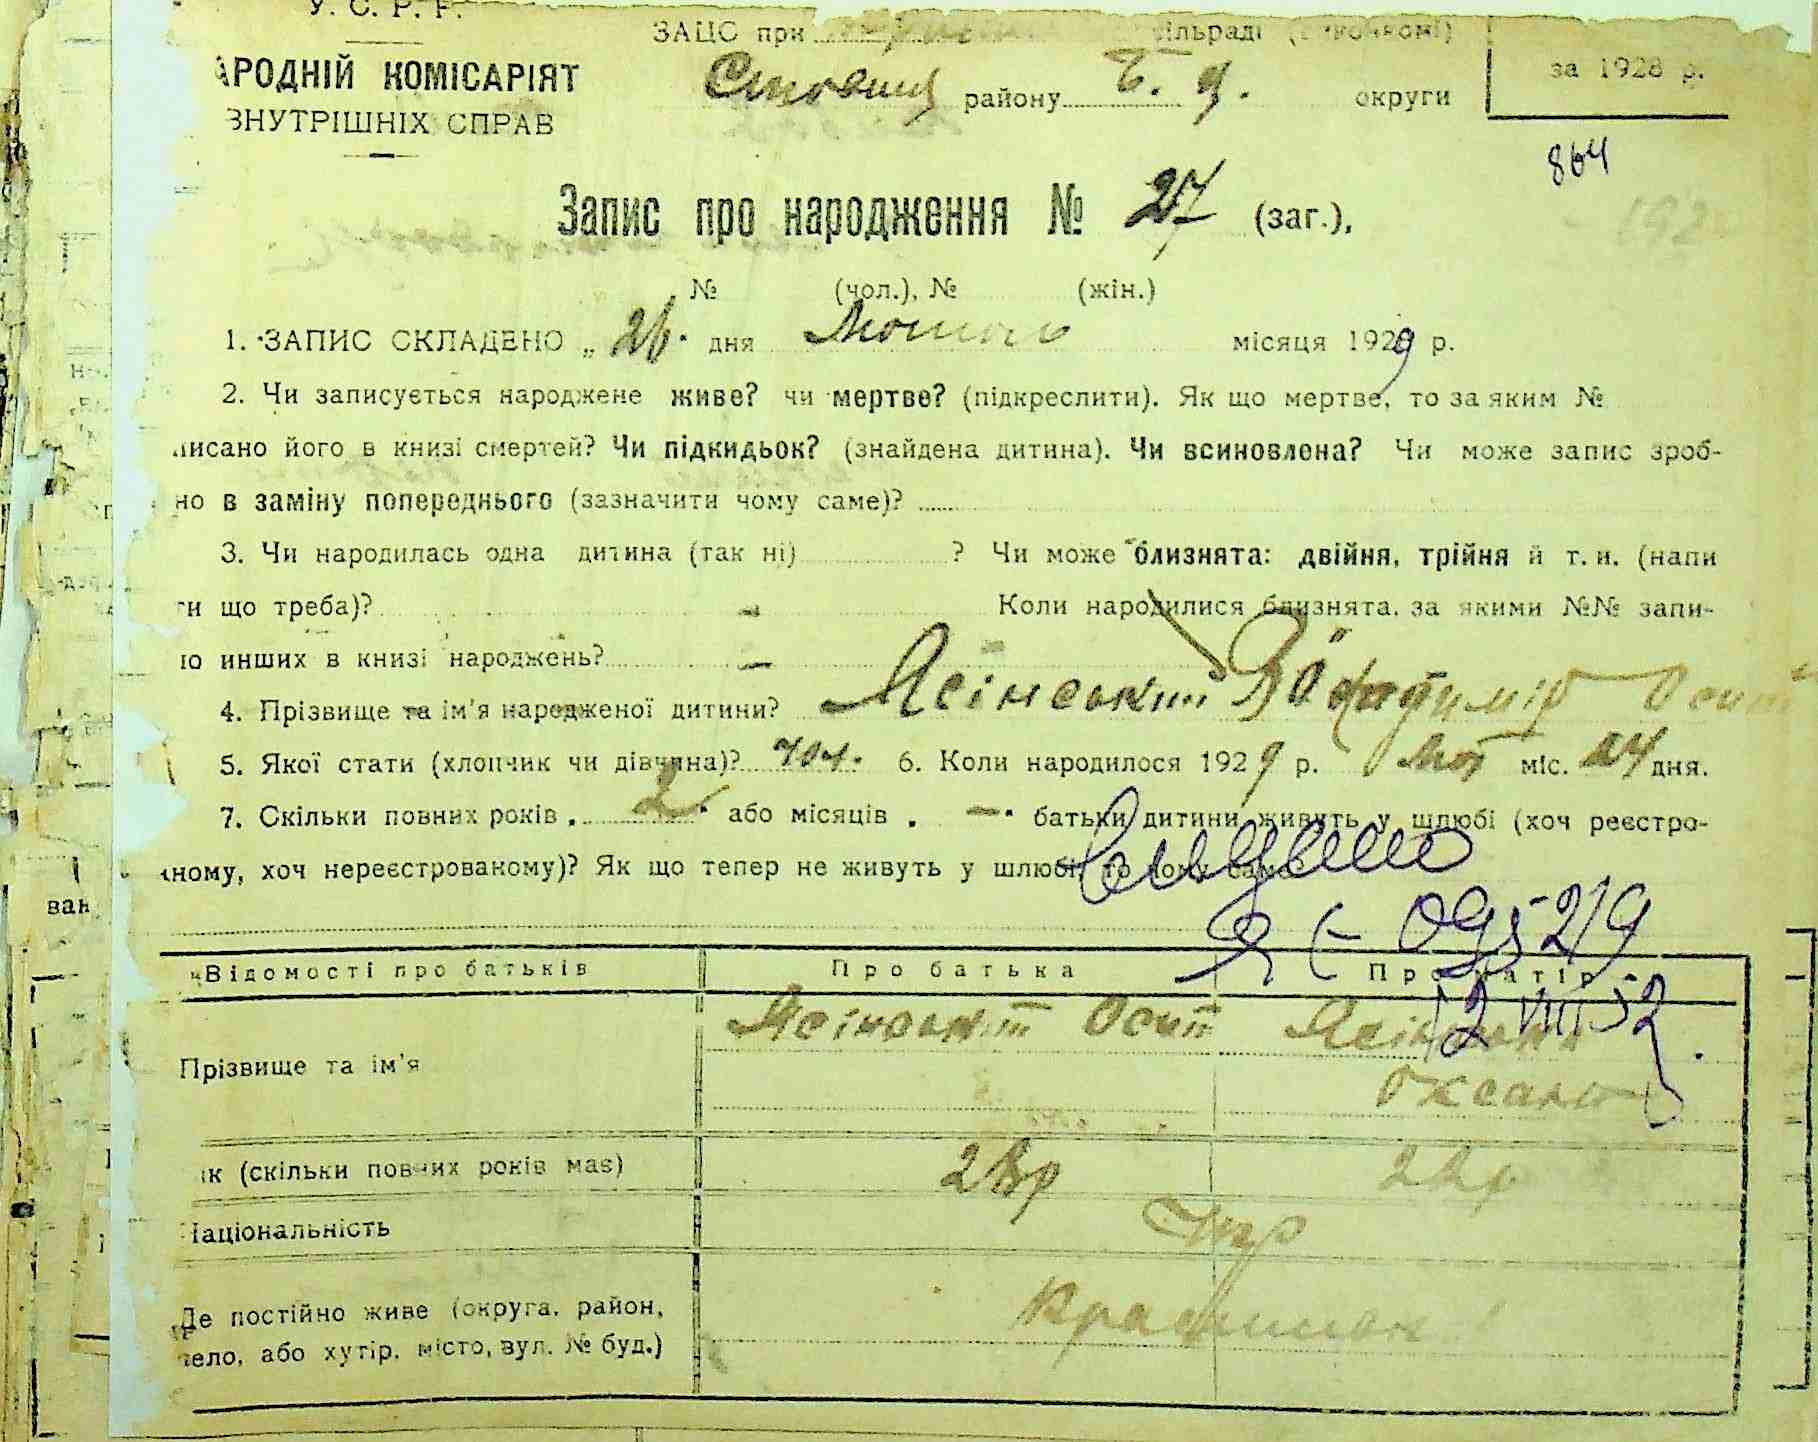 У. С. Р. Р.
ЗАЦС при ільраді
АРОДНІЙ КОМІСАРІЯТ району Б. Ц. округи за 1928 р.
ВНУТРІШНІХ СПРАВ
864
Запис про народження № 27 (заг.),
192
№ (чол.), № (жін.)
1. ЗАПИС СКЛАДЕНО „ 26 дня Лютого місяця 1929 р.
2. Чи записується народжене живе? чи мертве? (підкреслити). Як що мертве, то за яким №
писано його в книзі смертей? Чи підкидьок? (знайдена дитина). Чи всиновлена? Чи може запис зроб-
но в заміну попереднього (зазначити чому саме)?
3. Чи народилась одна дитина (так ні) ? Чи може близнята: двійня, трійня й т. и. (напи
ти що треба)? - Коли народилися близнята, за якими №№ запи-
но инших в книзі народжень? —
4. Прізвище та ім'я народженої дитини? Ясінський Володимір Осип
5. Якої стати (хлопчик чи дівчина)? чол. 6. Коли народилося 1929 р. Лют міс. 24 дня.
7. Скільки повних років . 2 або місяців . — батьки дитини живуть у шлюбі (хоч реєстро-
ному, хоч нереєстрованому)? Як що тепер не живуть у шлюбі, то чому саме
095219
Відомості про батьків Про батька Про матір
12 VIII 52
Прізвище та ім'я Ясінський Осип Ясінськ
Оксана
ік (скільки повних років має) 28р 22р
Національність Укр
Де постійно живе (округа, район,
село, або хутір, місто, вул. № буд.)
вак